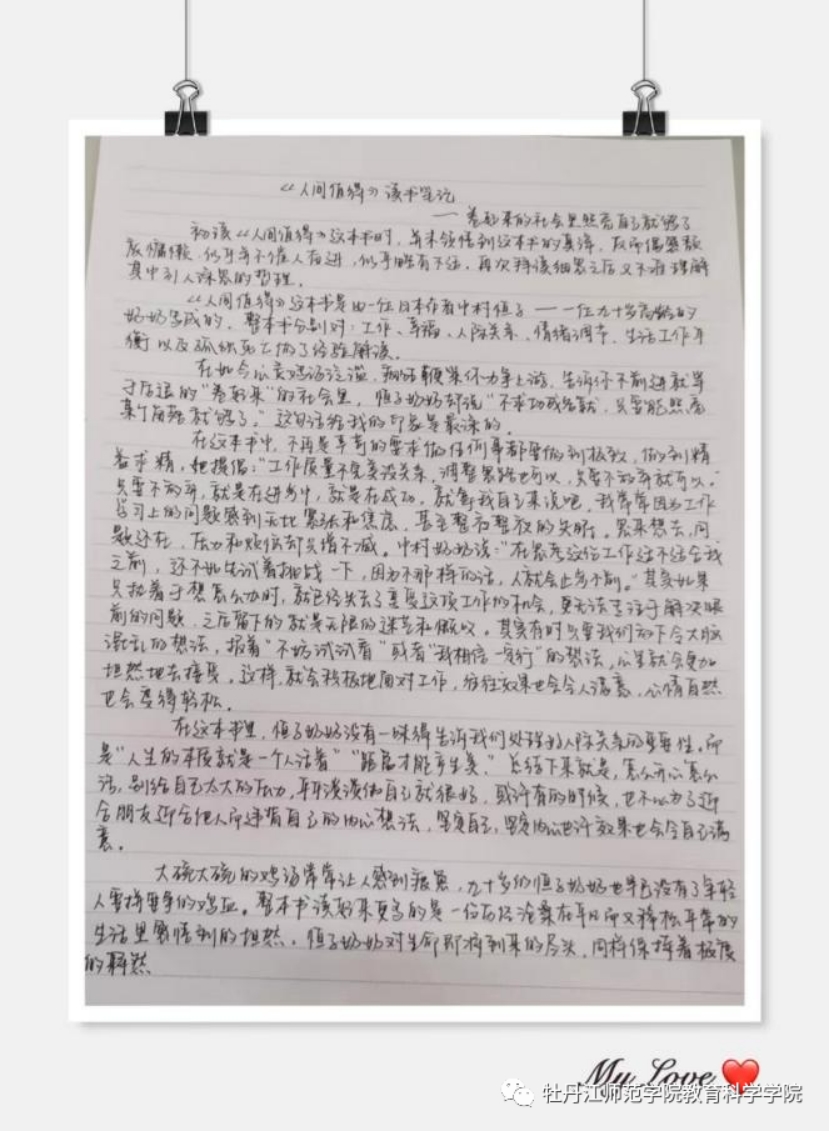 《人间值得》读书笔记
——卷起来的社会里照亮自己就够了
初读《人间值得》这本书时,并未领悟到这本书的真谛,反而偶感颓
废慵懒,似乎并不催人奋进,似乎略有不适,再次拜读细思之后又不难理解
其中引人深思的哲理。
《人间值得》这本书是由一位日本作者中村恒子——一位九十岁高龄的
奶奶写成的。整本书分别对:工作、幸福、人际关系、情绪调节、生活工作平
衡以及孤独死亡做了经验解读。
在如今心灵鸡汤泛滥,鞭策你力争上游,告诉你不前进就等
于后退的“卷起来”的社会里,恒子奶奶却说“不求功成名就,只要能照亮
某个角落就够了。”这句话给我的印象是最深的。
在这本书中,不再是苛苛的要求做任何事都要做到极致,做到精
益求精,她提倡:“工作质量不完美没关系,调整思路也可以,只要不放弃就可以。”
只要不放弃,就是在进步中,就是在成功。就拿我自己来说吧,我常常因为工作
学习上的问题感到无比紧张和焦虑,甚至整夜整夜的失眠。思来想去,问
题还在,压力和烦恼却只增不减。中村奶奶说:“在思考这份工作适不适合我
之前,还不如先试着挑战一下,因为不那样的话,人就会止步不前。”其实如果
只执着于想怎么办时,就已经失去了享受这项工作的机会,更无法专注于解决眼
前的问题,之后留下的就是无限的迷茫和慨叹。其实有时只要我们放下令大脑
混乱的想法,报着“不妨试试看”或者“我相信一定行”的想法,心里就会更加
坦然地去接受。这样,就会积极地面对工作,往往效果也会令人满意,心情自然
也会变得轻松。
在这本书里,恒子奶奶没有一味得告诉我们处理好人际关系的重要性。而
是“人生的本质就是一个人活着”“距离才能产生美。”总结下来就是,怎么开心怎么
活,别给自己太大的压力,平平淡淡做自己就很好,或许有的时候,也不必为了迎
合朋友迎合他人而违背自己的内心想法,坚定自己,坚定内心也许效果也会令自己满
意。
大碗大碗的鸡汤常常让人感到疲惫,九十岁的恒子奶奶也早已没有了年轻
人要拼要争的鸡血。整本书读起来更多的是一位历经沧桑在平凡而又稀松平常的
生活里感悟到的坦然。恒子奶奶对生命即将到来的尽头,同样保持着极度
的释然
My Love
牡丹江师范学院教育科学学院